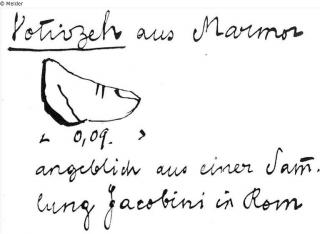 © Melder
Votivzeh aus Marmor
< 0,09. >
angeblich aus einer Sam̄-
lung Jacobini in Rom